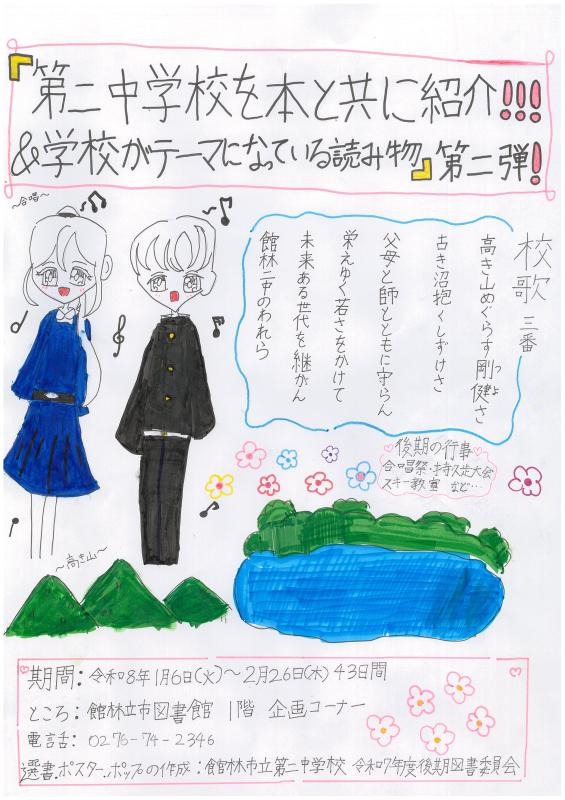 『第二中学校を本と共に紹介!!!
&学校がテーマになっている読み物』第二弾!
〜合唱〜
校歌 三番
高き山めぐらす剛健さ
つよ
古き沼抱くしずけさ
父母と師とともに守らん
栄えゆく若さをかけて
未来ある世代を継がん
館林二中のわれら
後期の行事
合唱祭・持久走大会
スキー教室 など…
〜高き山〜
期間:令和8年1月6日(火)〜2月26日(木)43日間
ところ:館林立市図書館 1階 企画コーナー
電話:0276-74-2346
選書.ポスター.ポップの作成:館林市立第二中学校 令和7年度後期図書委員会